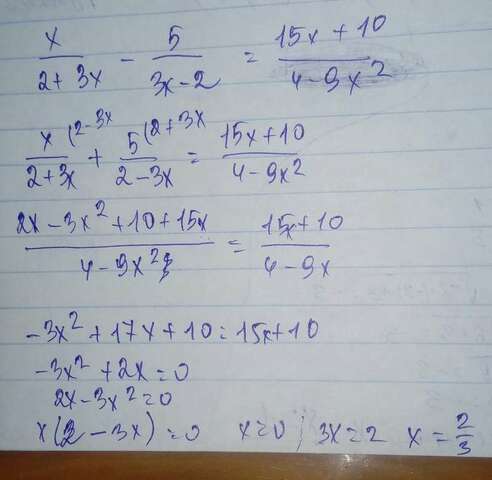 x/(2+3x) - 5/(3x-2) = (15x+10)/(4-9x²)
x(2-3x/(2+3x) + 5(2+3x/(2-3x) = (15x+10)/(4-9x²)
(2x-3x²+10+15x)/(4-9x²) = (15x+10)/(4-9x)
-3x²+17x+10=15x+10
-3x²+2x=0
2x-3x²=0
x(2-3x)=0 x=0; 3x=2 x=2/3